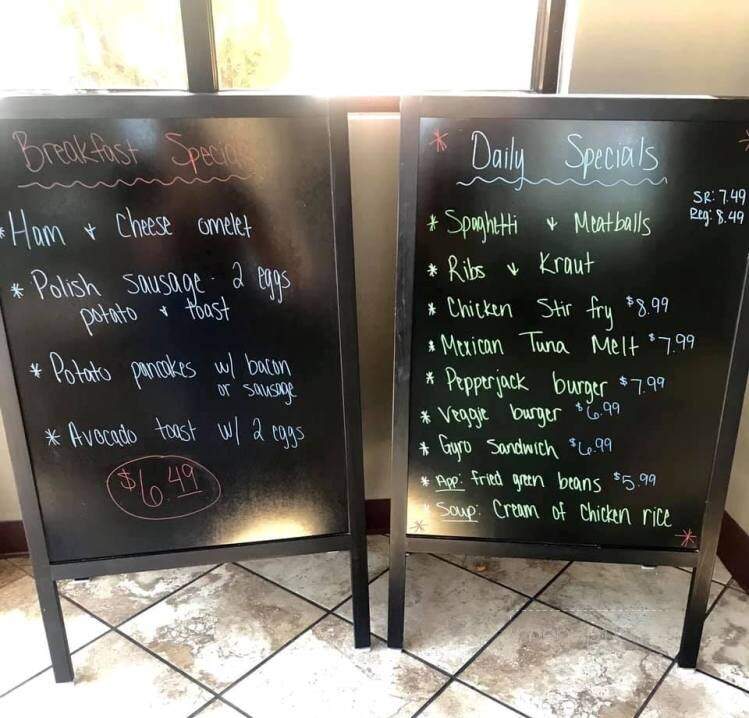 Breakfast Specials
* Ham & Cheese omelet
* Polish sausage - 2 eggs
potato & toast
* Potato pancakes w/ bacon
or sausage
* Avocado toast w/ 2 eggs
$6.49
* Daily Specials *
SR: 7.49
Reg: 8.49
* Spaghetti & Meatballs
* Ribs & Kraut
* Chicken Stir fry $8.99
* Mexican Tuna Melt $7.99
* Pepperjack burger $7.99
* Veggie burger $6.99
* Gyro Sandwich $6.99
* App: fried green beans $5.99
* Soup: Cream of Chicken rice
* *